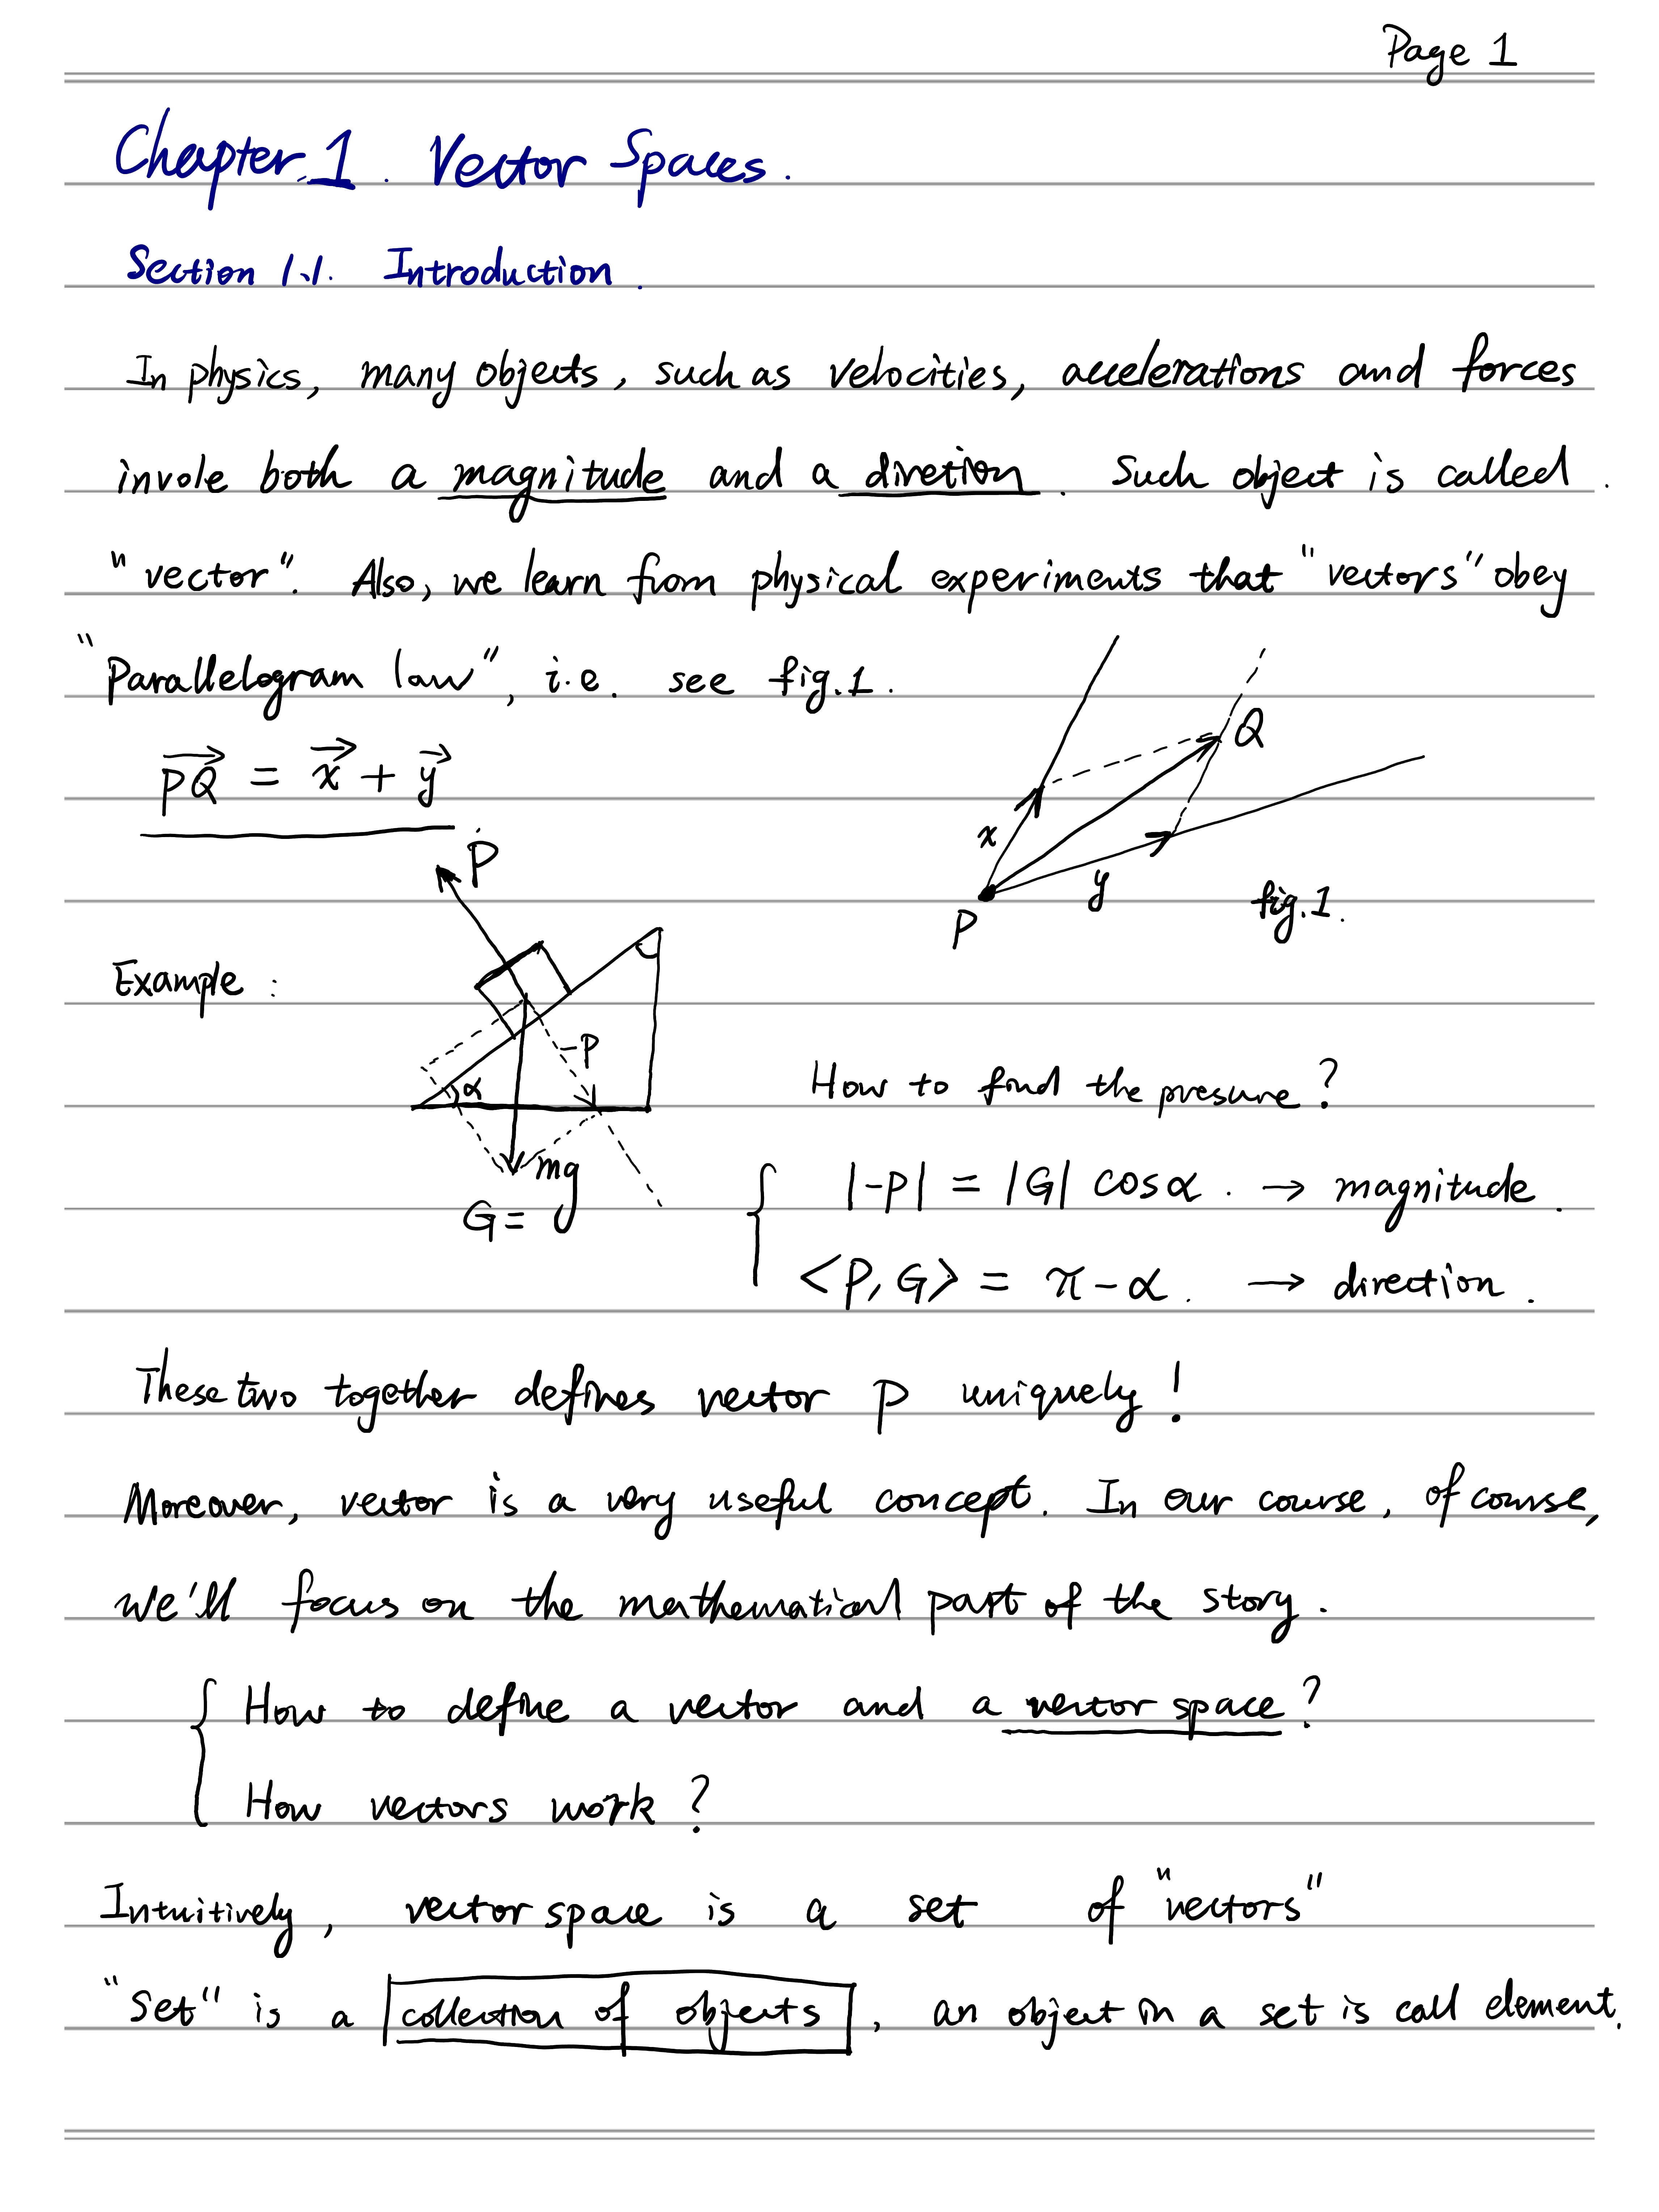 Page 1
Chapter 1. Vector Spaces.
Section 1.1. Introduction.
In physics, many objects, such as velocities, accelerations and forces
invole both a magnitude and a diretion. Such object is called
"vector". Also, we learn from physical experiments that "vectors" obey
"Parallelogram law", i.e. see fig.1.
PQ = x + y
Q
x
y
P
fig.1.
P
Example:
-P
α
mg
G = g
How to find the presure?
|-P| = |G| cosα. → magnitude.
<P, G> = π-α. → direction.
These two together defines vector P uniquely!
Moreover, vector is a very useful concept. In our course, of course,
we'll focus on the mathematical part of the story.
How to define a vector and a vector space?
How vectors work?
Intuitively, vector space is a set of "vectors"
"Set" is a collection of objects, an object in a set is call element.